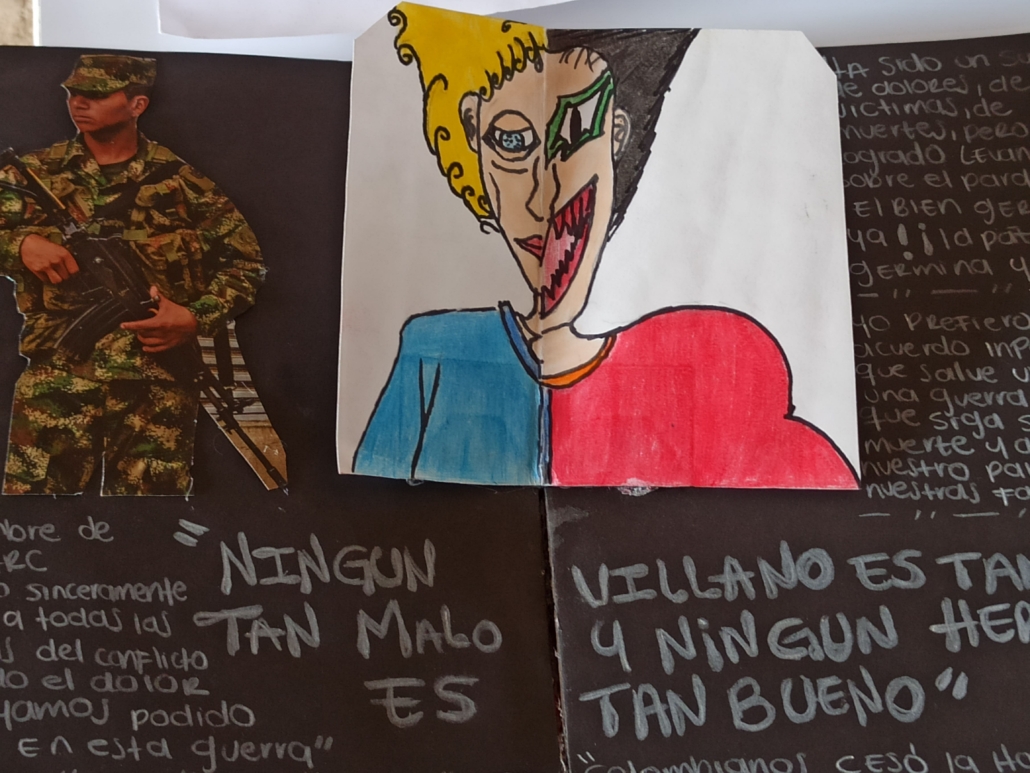 TA SIDO UN
de dolores, de
victimas, de
muertes, pero
Logrado LEVAN
sobre el
El BIEN GER
ya! ¡la
GERMINA Y
YO PREFIERO
acuerdo INP
que salve U
una guerra
que siga S
muerte y d
nuestro pa
nuestras Fa
bre de
RC
o sinceramente
a todas las
s del conflicto
o el dolor
yamos podido
En esta guerra"
"NINGUN
TAN MALO
ES
VILLANO ES TAN
Y NiNGUN HER
TAN BUENO"
"Colombianos CESÓ la Ho